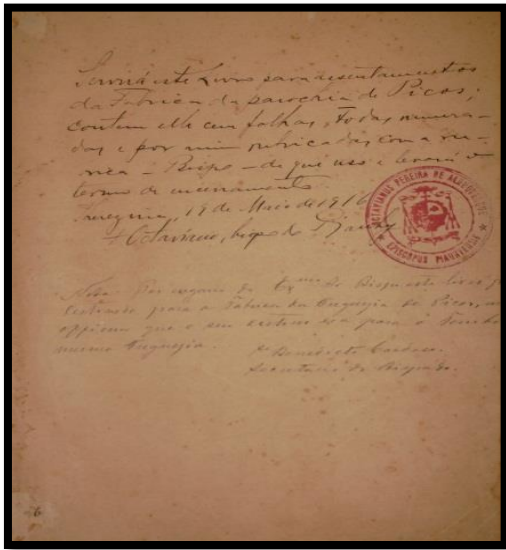 Servirá este Livro para assentamentos
da Fabrica da parochia de Picos;
contem elle cem folhas, todas numera-
das e por mim rubricadas com a ru-
brica – Bispo – de que uso e levará o
termo de encerramento.
Therezina, 19 de Maio de 1916
+ Octaviano, bispo do Piauhy
OCTAVIANUS PEREIRA DE ALBUQUERQUE
EPISCOPUS PIAUHIENSIS
Nota. Por engano do Exmo Sr. Bispo este livro foi
para a Fabrica da Freguezia de Picos,
que o seu era para o Tombo
mesma Freguezia.
Benedicto Cardoso.
Secretario do Bispado.
6